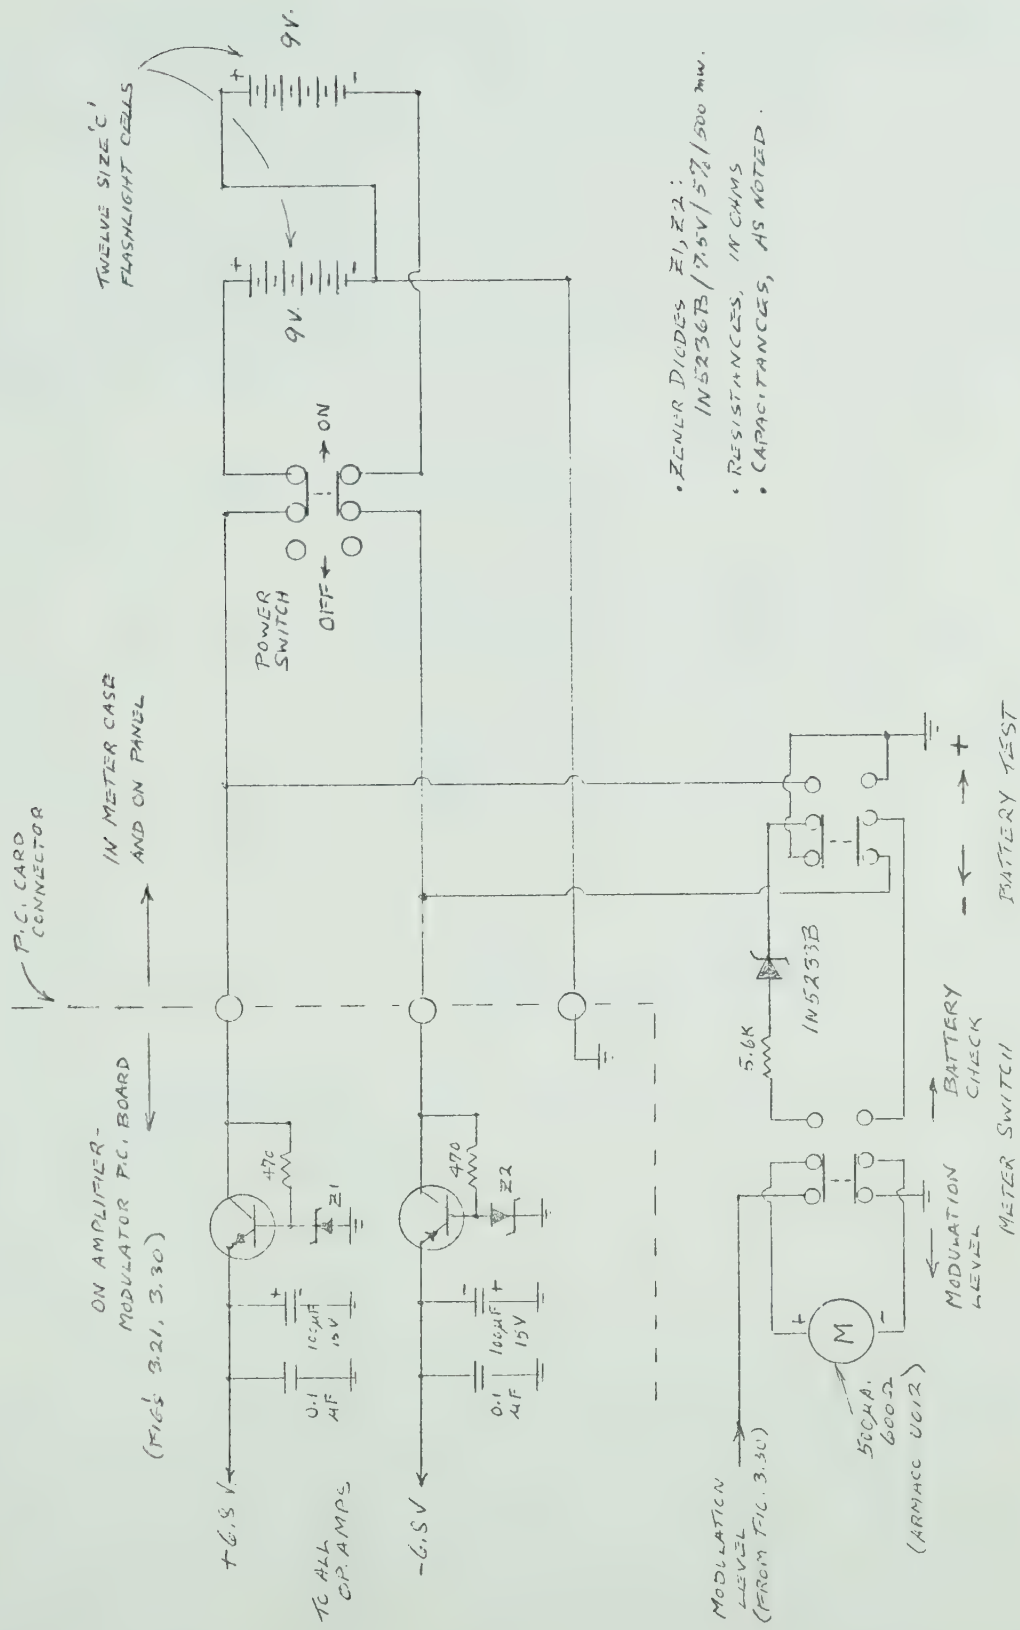 P.C. CARD
CONNECTOR
ON AMPLIFIER-
MODULATOR P.C. BOARD
(FIG'S 3.21, 3.30)
IN METER CASE
AND ON PANEL
TWELVE SIZE 'C'
FLASHLIGHT CELLS
+
-
9V.
+
-
9V.
POWER
SWITCH
OFF
ON
+6.8V
TO ALL
OP. AMPS
-6.8V
0.1
µF
+
-
100µF
15V
Z1
470
0.1
µF
-
+
100µF
15V
Z2
470
• ZENER DIODES Z1, Z2:
1N5236B/7.5V/5%/500 mw.
• RESISTANCES, IN OHMS
• CAPACITANCES, AS NOTED.
MODULATION
LEVEL
(FROM FIG. 3.30)
5.6K
1N5233B
+
M
-
500µA.
600Ω
MODULATION
LEVEL
BATTERY
CHECK
METER SWITCH
-
+
BATTERY TEST